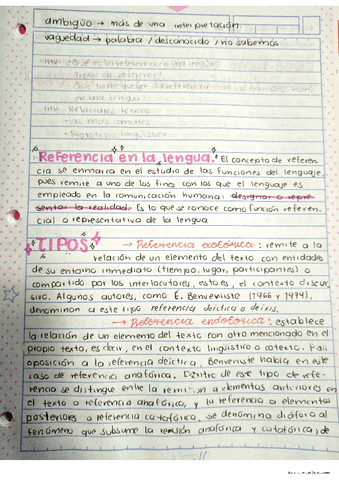 ambigüo → más de una interpretación.
vaguedad → palabra / desconocido / no sabemos
Inv. ¿Qué es la referencia en una lengua?
Tipos de referencia?
Qué tiene que ver la referencialidad
en una lengua?
Inv. Relaciones
- Las más comunes
- Prototipo lingüística
Referencia en la lengua. El concepto de referen-
cia se enmarca en el estudio de las funciones del lenguaje,
pues remite a uno de los fines con los que el lenguaje es
empleado en la comunicación humana: designar o repre-
sentar la realidad. Es lo que se conoce como función referen-
cial o representativa de la lengua
TIPOS → Referencia exofórica: remite a la
relación de un elemento del texto con entidades
de su entorno inmediato (tiempo, lugar, participantes) o
compartido por los interlocutores, esto es, el contexto discur
sivo. Algunos autores, como E. Benveniste (1966 y 1974),
denominan a este tipo referencia deíctica o deixis.
→ Referencia endofórica: establece
la relación de un elemento del texto con otro mencionado en el
propio texto, es decir, en el contexto lingüístico o cotexto. Por
oposición a la referencia deíctica, Benveniste habla en este
caso de referencia anafórica. Dentro de este tipo de refe-
rencia se distingue entre la remisión a elementos anteriores en
el texto o referencia anafórica, y la referencia a elementos
posteriores o referencia catafórica, se denomina diáfora al
fenómeno que subsume la remisión anafórica y catafórica; de